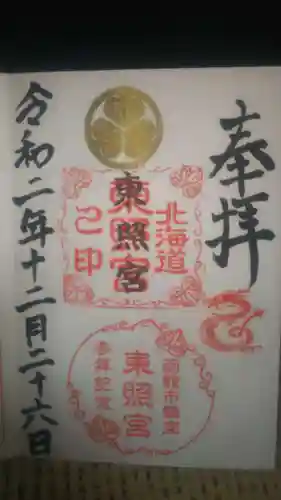 奉拝
北海道
東照宮
之印
東照宮
函館市鎮座
東照宮
参拝記念
令和二年十二月二十六日